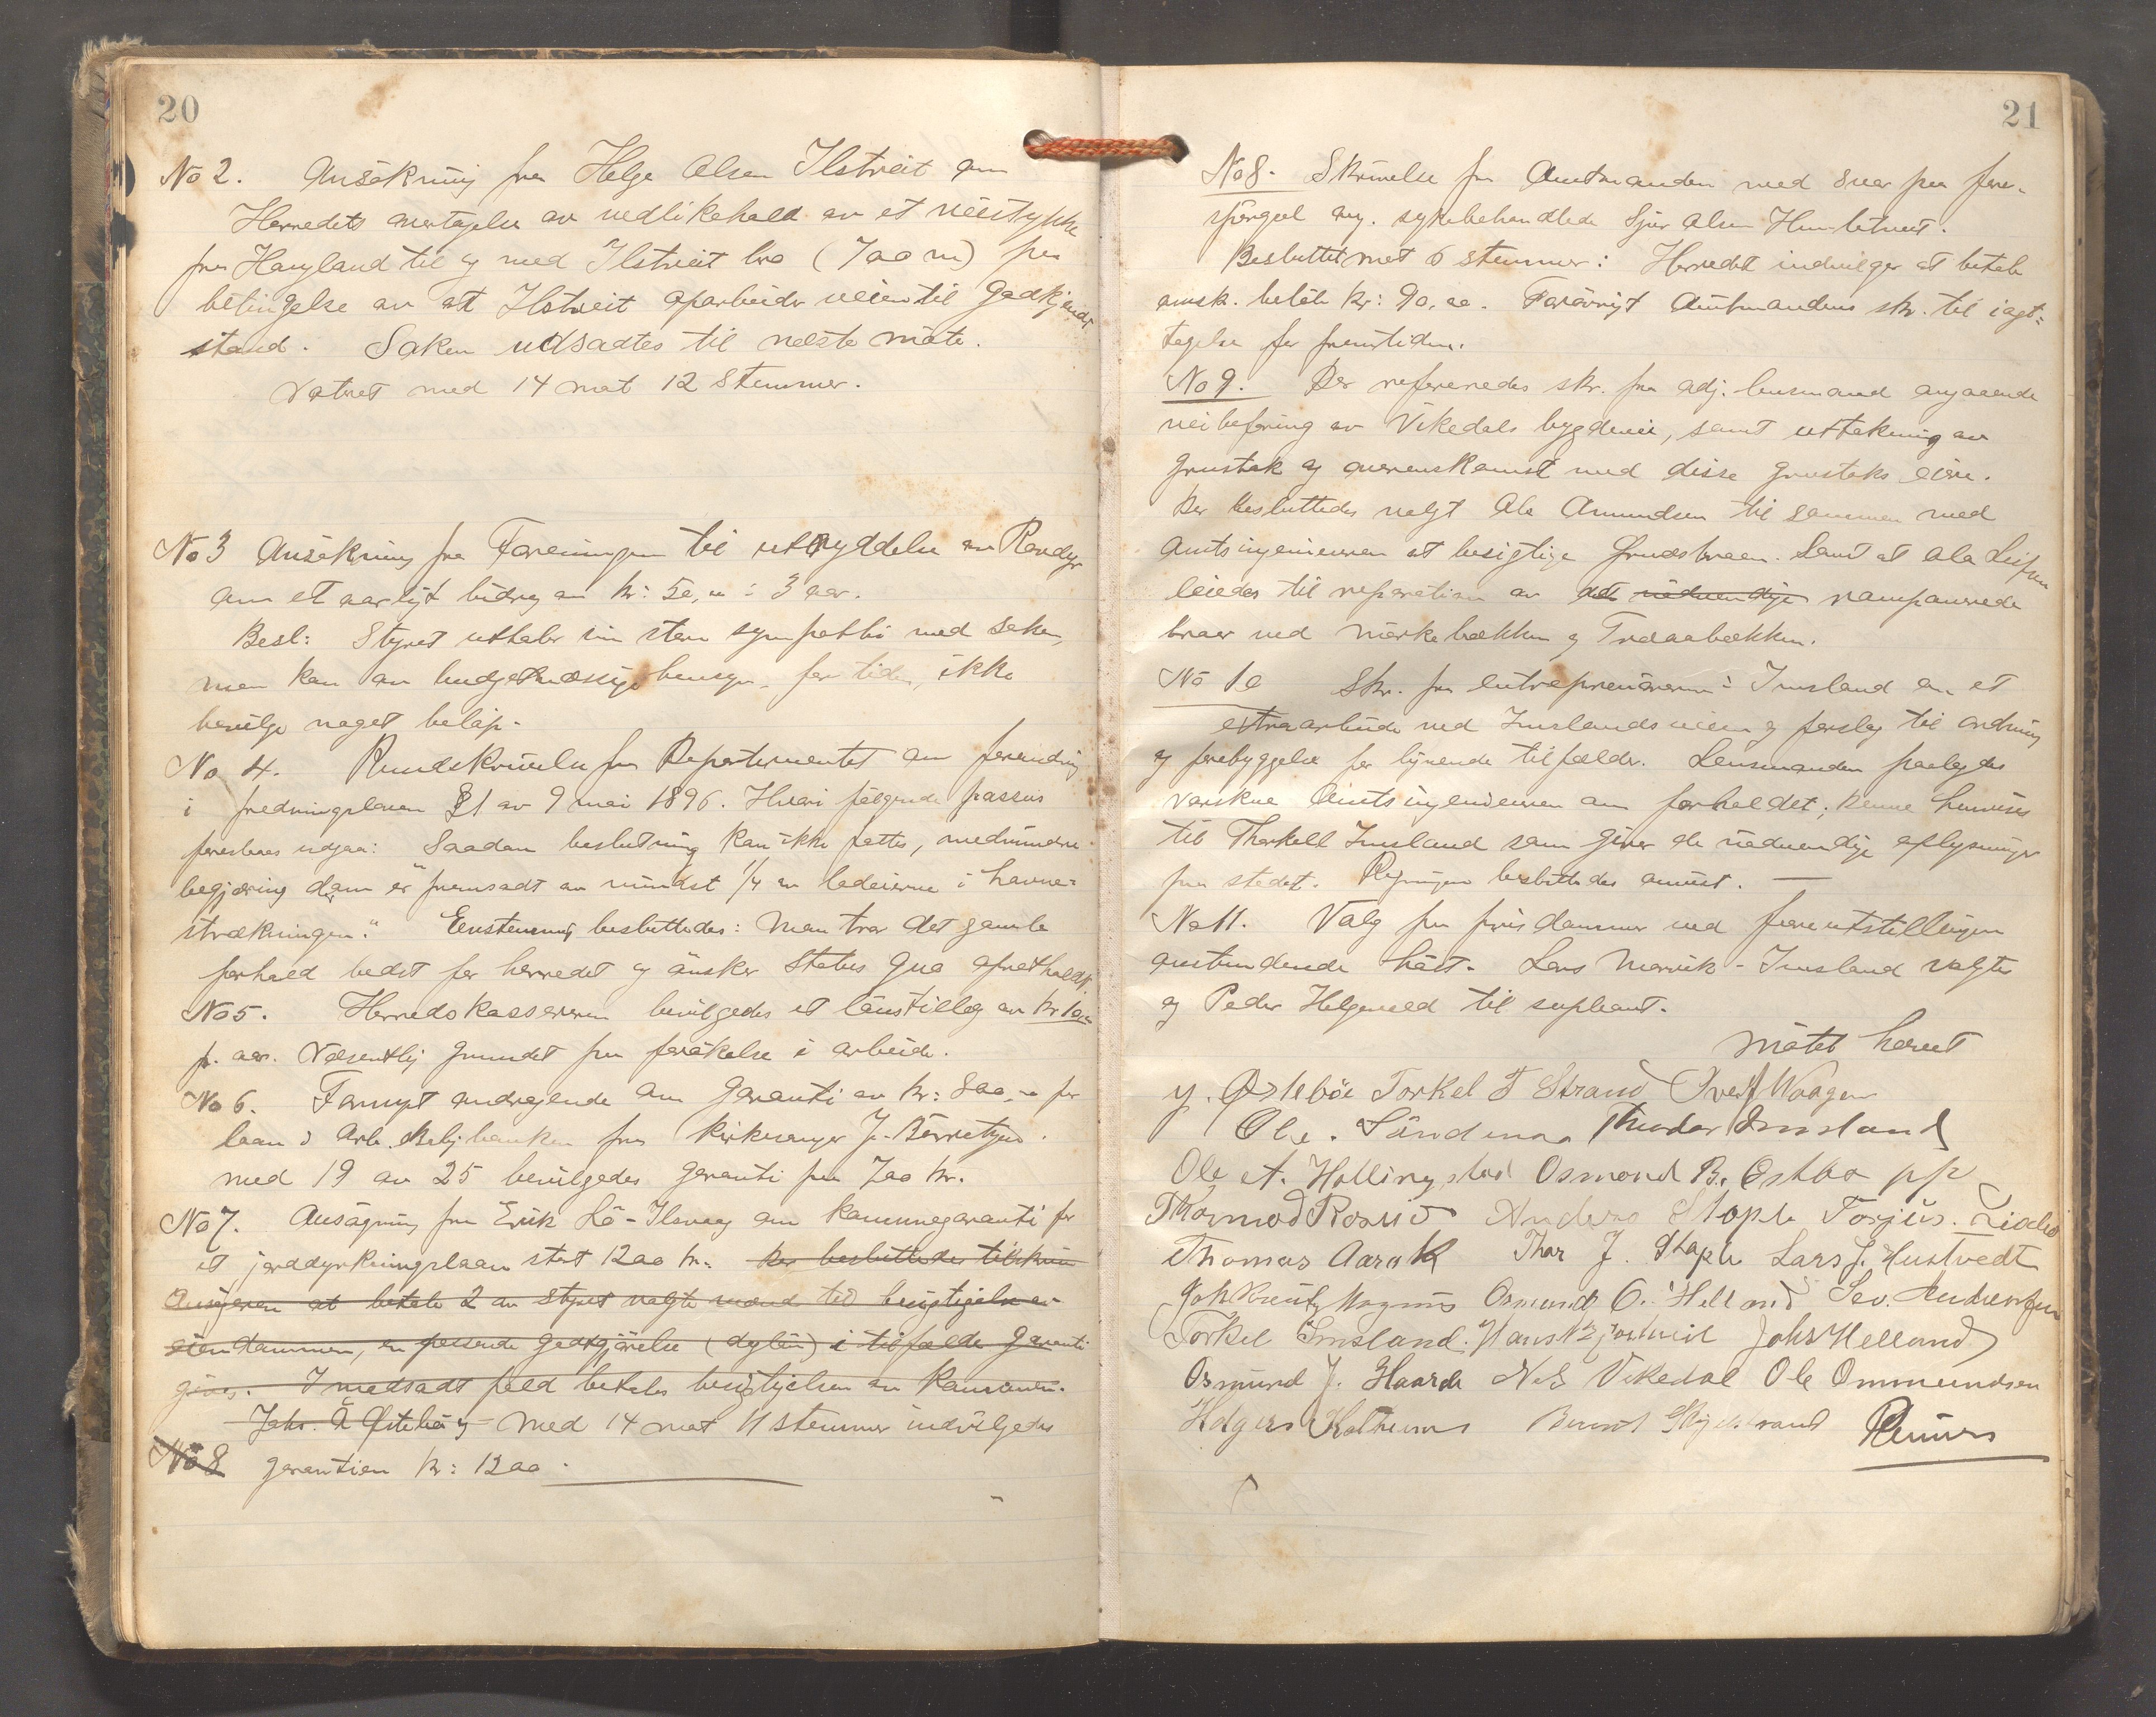 20
No 2. Ansökning fra Helge Olsen Ilstveit om
Herredets overtagelse av vedlikehold av et veistykke
fra Haugland til og med Ilstveit bro (700 m) paa
betingelse av at Ilstveit oparbeider veien til godkjendt
stand. Saken udsattes til neste möte.
Votret med 14 mot 12 stemmer.
No 3 Ansökning fra Foreningen til utryddelse av Rovdyr
om et aarligt bidrag av kr: 50,00 i 3 aar.
Besl: Styret uttaler sin store sympathi med saken,
men kan av budgetmæssige hensyn, for tiden, ikke
bevilge noget beløp.
No 4. Rundskrivelse fra Departementet om forandring
i fredningsloven § 1 av 9 mai 1896. Hvori følgende passus
foreslaaes udgaa: Saadan beslutning kan ikke fattes, medmindre
begjæring derom er "fremsadt av mindst 1/4 av lodeierne i havne-
strækningen." Eenstemmig besluttedes: Man tror det gamle
forhold bedst for herredet og önsker status quo opretholdt.
No 5. Herredskassereren bevilgedes et lönstillæg av kr 100
pr. aar. Væsentlig grundet paa forökelse i arbeide.
No 6. Fornyet andragende om garanti av kr: 800,00 for
laan i Arb. & Bolig banken fra kirkesanger J. Börretzen.
med 19 av 25 bevilgedes garanti paa 700 kr.
No 7. Ansögning fra Erik Lö-Ilsvaag om kommunegaranti for
et jorddyrkningslaan stort 1200 kr. Der besluttedes tilskrive
Ansögeren at betale 2 av styret valgte mænd ved besigtigelse av
eiendommen, en passende godtgjörelse (daglön) i tilfælde garanti
gives. I modsadt fald betales besigtigelsen av kommunen.
Johs. Ö Østebö og Med 14 mot 11 stemmer indvilgedes
No 8 garantien kr: 1200.
21
No 8. Skrivelse fra Amtmanden med svar paa fore-
spörgsel ang. sykebehandlede Sjur Olsen
Besluttet mot 6 stemmer: Herredet indvilger at betale
omsk. belöb kr: 90,00. Forövrigt Amtmandens skr. til iagt-
tagelse for fremtiden.
No 9. Der refereredes skr. fra adj. lensmand angaaende
veibefaring av Vikedals bygdeveie, samt uttakning av
grustak og overenskomst med disse grustaks eiere.
Der besluttedes valgt Ole Amundsen til sammen med
Amtsingeniøren at besigtige broen. Samt at Ola
leiedes til reparation av de nödvendige ramponerede
broer ved Mörkebækken og Tredaabekken.
No 10 Skr. fra entreprenörerne i Imsland om et
extraarbeide ved Imslandsveien og forslag til ordning
og forebyggelse for lignende tilfælder. Lensmanden paalagdes
varskue Amtsingeniøren om forholdet; denne henvises
til Thorkell Imsland som giver de nödvendige oplysninger
paa stedet. Regningen besluttedes anvist.
No 11. Valg paa prisdommer ved faareutstillingen
anstundende höst. Lars Marvik-Imsland valgtes
og Peder Helgevold til supleant.
Mötet hævet
Y. Østeböe Torkel T Strand Sver J Waagen
Ole. Söndenaa Theodor Imsland
Ole A. Hollingstad Osmond B. Østbø pp
Thormod Rosvid Anders Stople Torjus.
Thomas Aarak Thor J. Stople Lars J. Hustvedt
Joh Magnus Osmund O. Helland Sev. Andersen
Torkel Imsland. Hans Johs Helland
Osmund J. Haarde N. S Vikedal Ole Ommundsen
Bernt